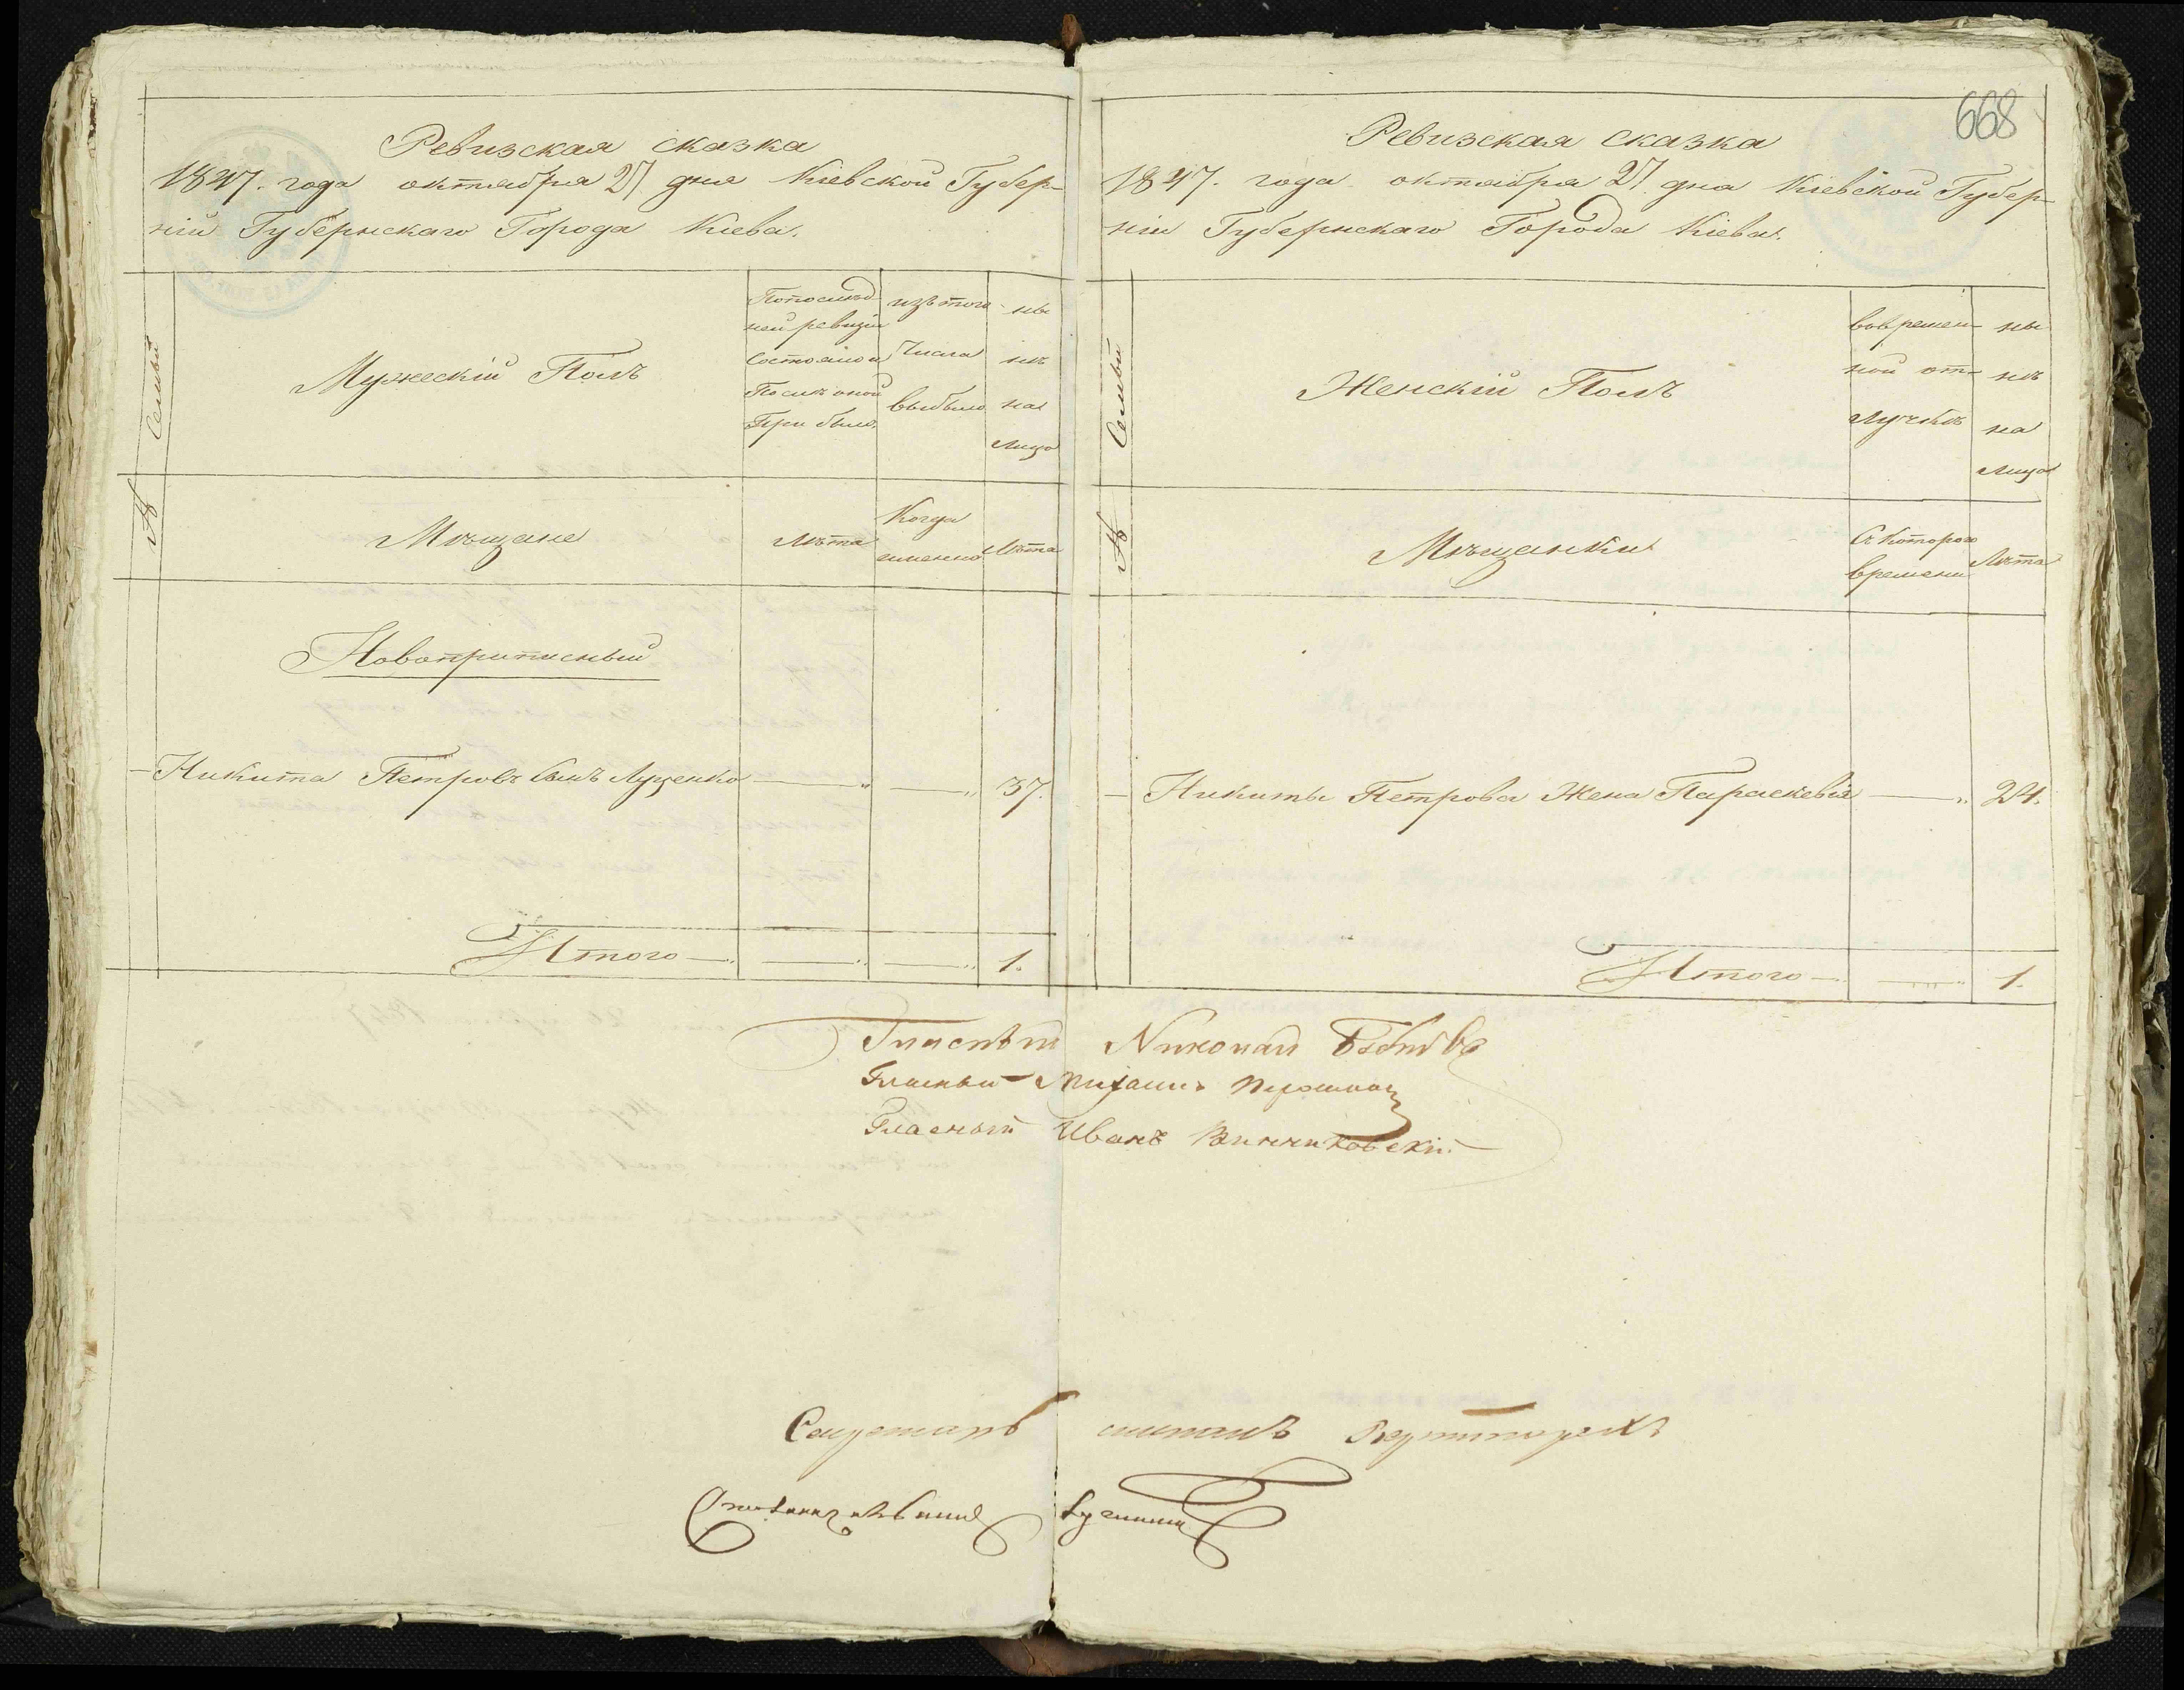 668
Ревизская сказка
1847. года октября 27 дня Кіевской Губер-
ніи Губернскаго Города Кіева.
№ Семьи
Мужескій Полъ
Попослѣд-
ней ревизіи
состояло и
Послѣ оной
Прибыло.
изъ того
Числа
выбыло
ны
нѣ
на
лицо
Мѣщане
Лѣта
Когда
именно
Лѣта
Новоприписный
Никита Петровъ сынъ Луценко — „ — „ 37.
Итого — „ — „ — „ 1.
Ревизская сказка
1847. года октября 27 дня Кіевской Губер-
ніи Губернскаго Города Кіева.
№ Семьи
Женскій Полъ
вовремен-
ной от-
лучкѣ
ны
нѣ
на
лицо
Мѣщанки
Съ котораго
времени
Лѣта
Никиты Петрова Жена Параскевія — „ 24.
Итого — „ 1.
Гласный Николай
Гласный Михаилъ
Гласный Иванъ Винниковскій